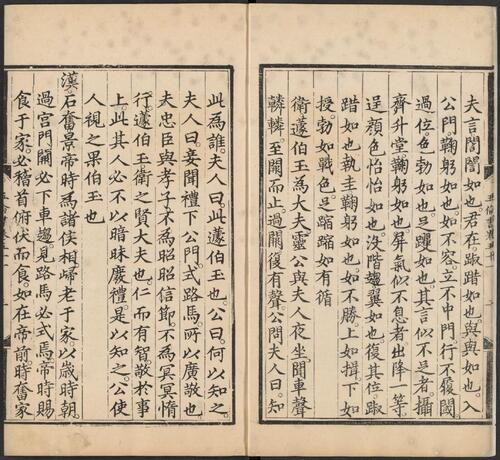 夫言誾誾如也君在踧踖如也與與如也。入
公門。鞠躬如也。如不容。立不中門。行不履閾。
過位。色勃如也。足躩如也。其言似不足者。攝
齊升堂鞠躬如也。屏氣似不息者出降一等
逞顏色怡怡如也。沒階趨翼如也。復其位。踧
踖如也執圭鞠躬如也。如不勝上如揖下如
授。勃如戰色。足蹜蹜如有循
衛蘧伯玉為大夫靈公與夫人夜坐。聞車聲
轔轔至闕而止。過闕復有聲。公問夫人曰。知
此為誰。夫人曰。此蘧伯玉也。公曰。何以知之。
夫人曰。妾聞禮下公門。式路馬。所以廣敬也
夫忠臣與孝子。不為昭昭信節。不為冥冥惰
行。蘧伯玉衛之賢大夫也。仁而有智敬於事
上。此其人必不以暗昧廢禮。是以知之。公使
人視之果伯玉也
漢石奮景帝時為諸侯相歸老于家。以歲時朝。
過宮門闕必下車趨。見路馬必式焉。帝時賜
食于家。必稽首俯伏而食。如在帝前時奮家